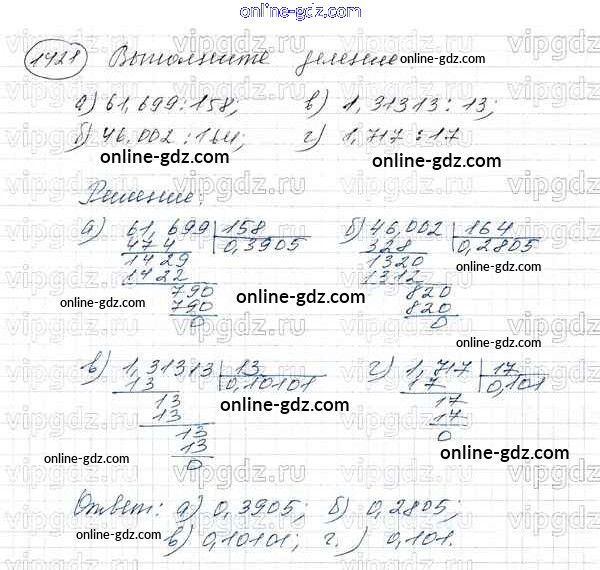 online-gdz.com
1421 Выполните деление
а) 61,699:158; в) 1,31313:13;
б) 46,002:164; г) 1,717:17
online-gdz.com
Решение:
а) 61,699 158 б) 46,002 164
474 0,3905 328 0,2805
1429 1320
1422 1312
790 820
790 820
0 0
online-gdz.com
в) 1,31313 13 г) 1,717 17
13 0,10101 17 0,101
13 17
13 17
13 0
13
0
online-gdz.com
Ответ: а) 0,3905; б) 0,2805;
в) 0,10101; г.) 0,101.
online-gdz.com
vipgdz.ru